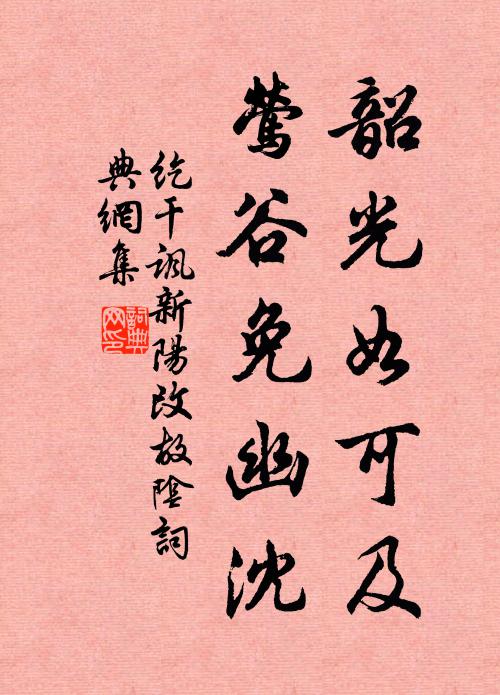 韶光如可及
鶯谷免幽沈
紇干諷新陽改故陰詞
典網集
詞典
网印